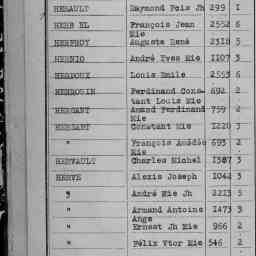 HERAULT Raymond Fois Jh 299 1
HERB EL François Jean 2552 6
Mie
HERPHOY Auguste René 2316 5
HERNIO André Yves Mie 1107 3
HERDOUX Louis Emile 2553 6
HERROUIN Ferdinand Cons- 692 2
tant Louis Mie
HERSANT Amand Ferdinand 759 2
Mie
HERSANT Constant Mie 1220 3
" François Amédée 693 2
Mie
HERVAULT Charles Michel 1387 3
HERVE Alexis Joseph 1042 3
" André Mie Jh 2213 5
" Armand Antoine 1473 3
Ange
" Ernest Jh Mie 966 2
" Félix Vtor Mie 546 2